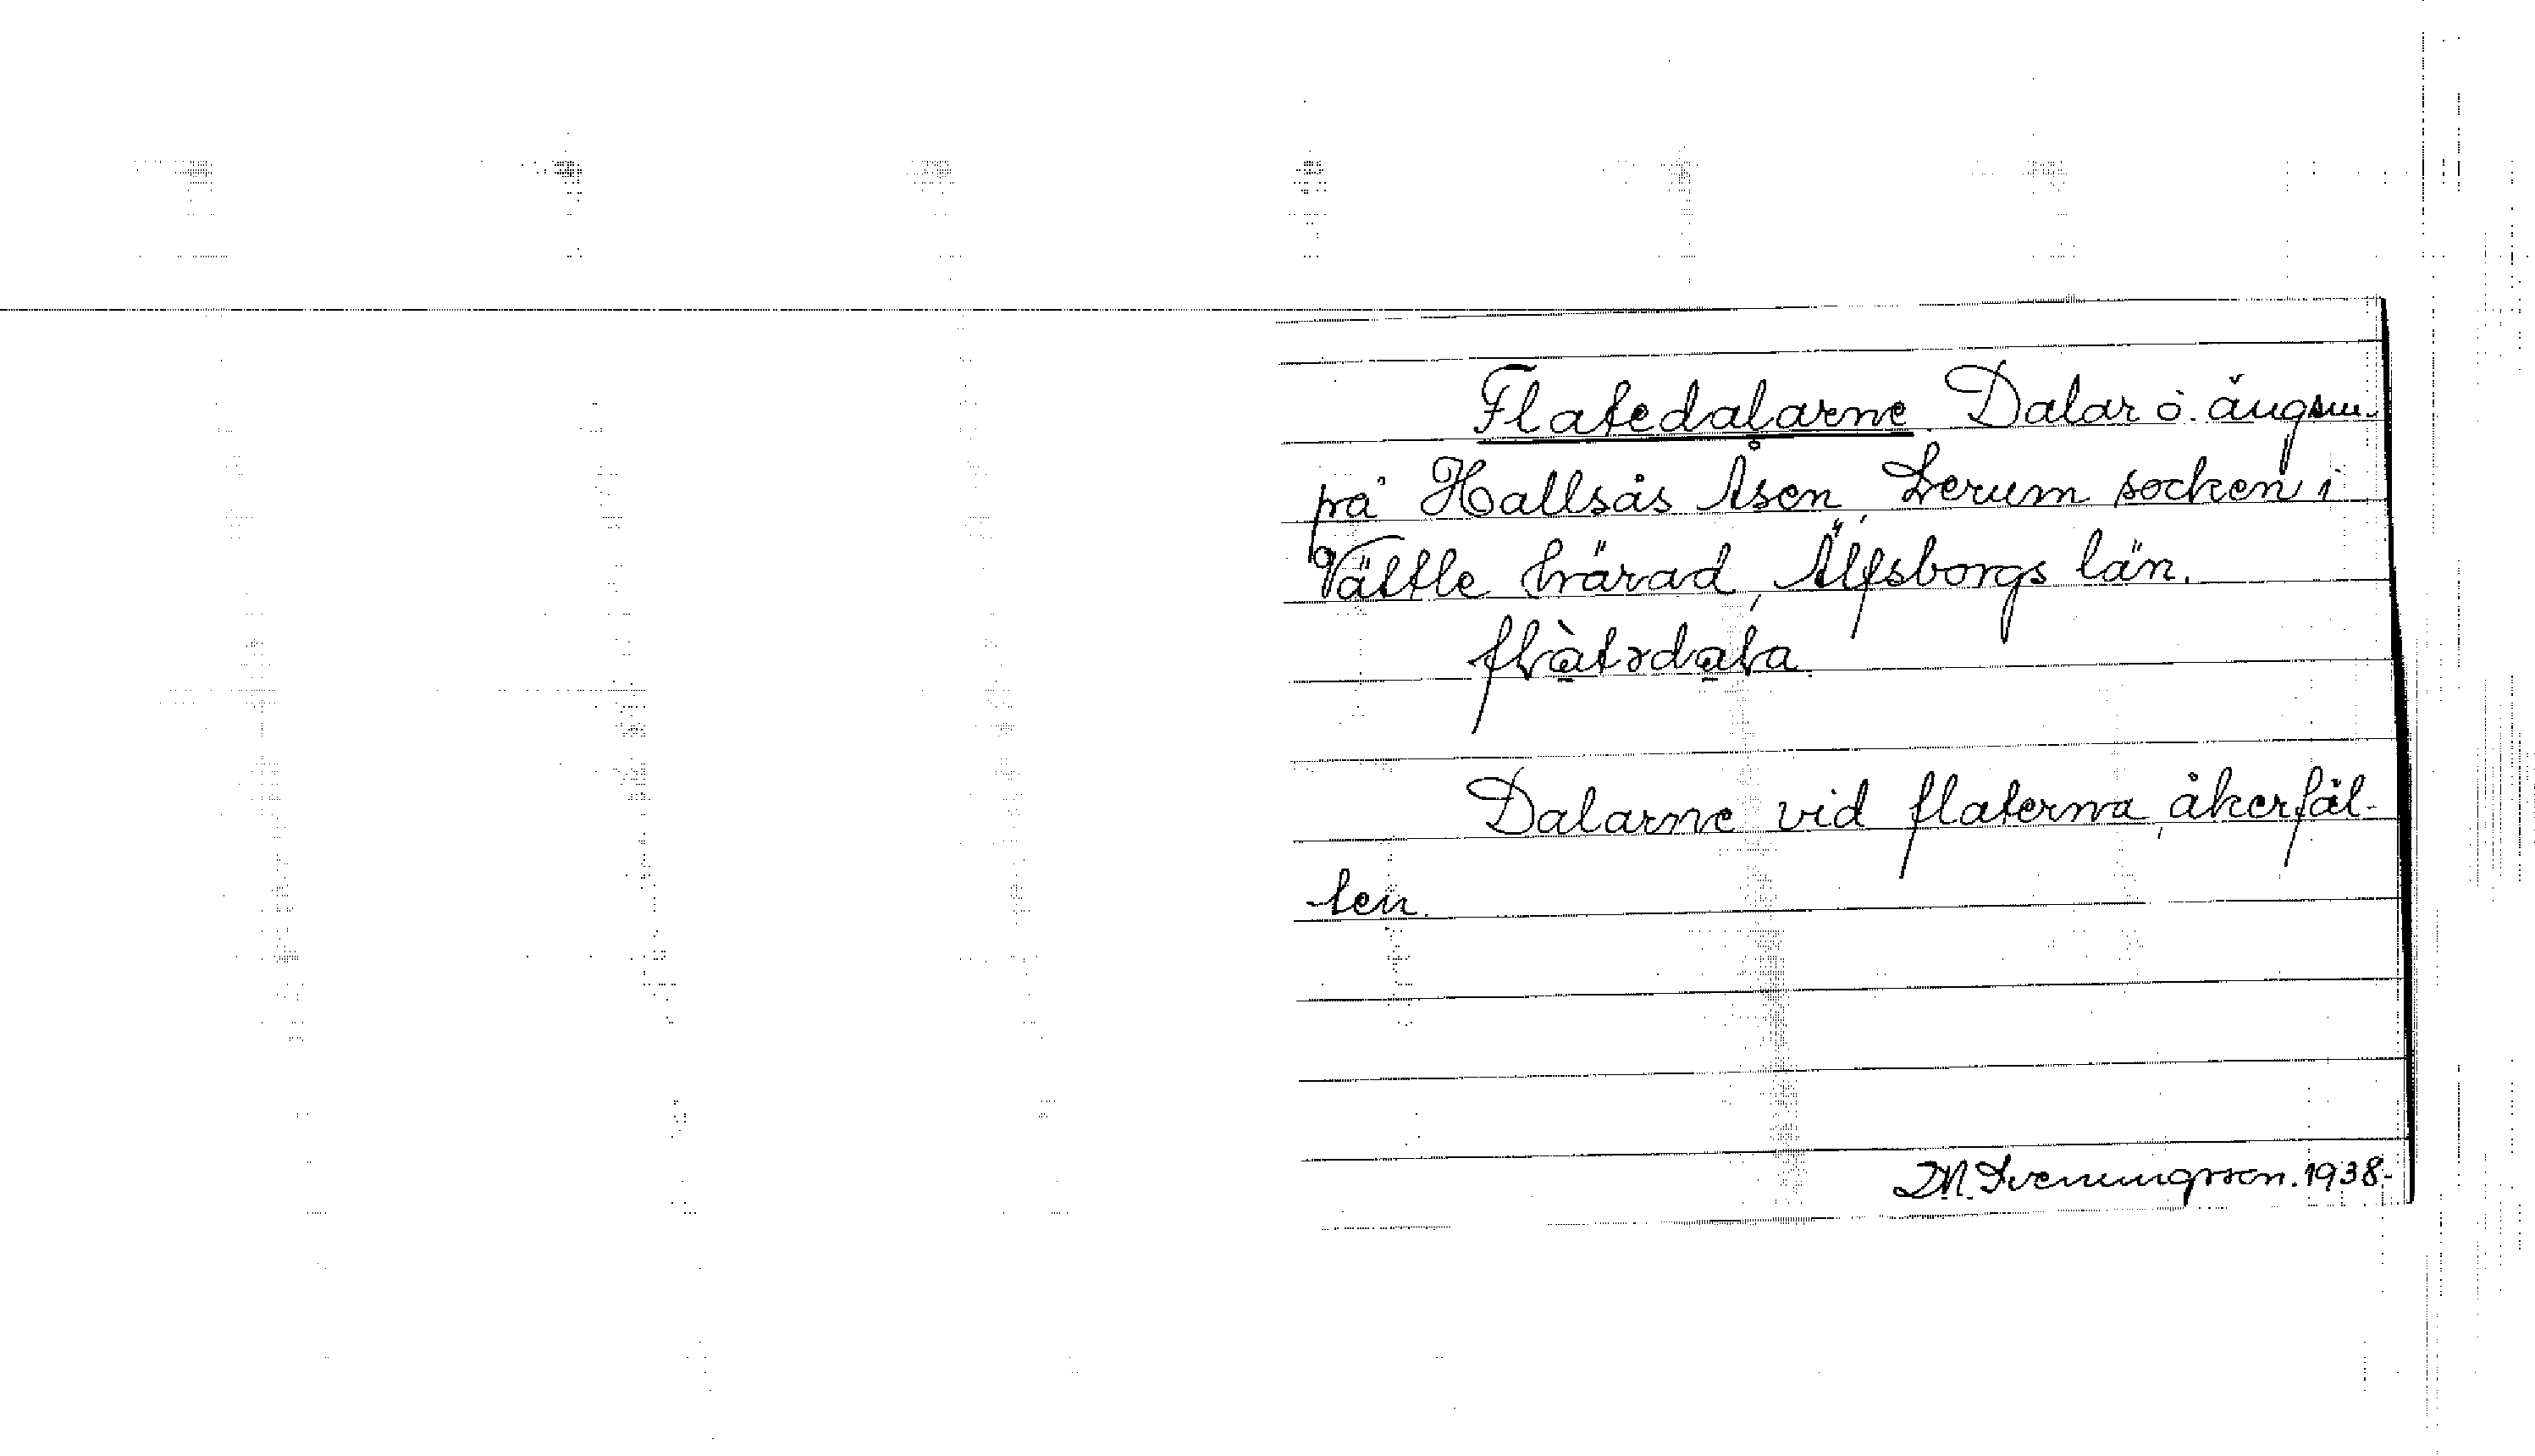 Flatedalarne. Dalar o. ängsm.
på Hallsås Åsen, Lerum socken i
Vättle härad, Älfsborgs län.
flàtədaƚa.
Dalarne vid flaterna, åkerfäl-
ten.
D.N. Sveningsson. 1938.